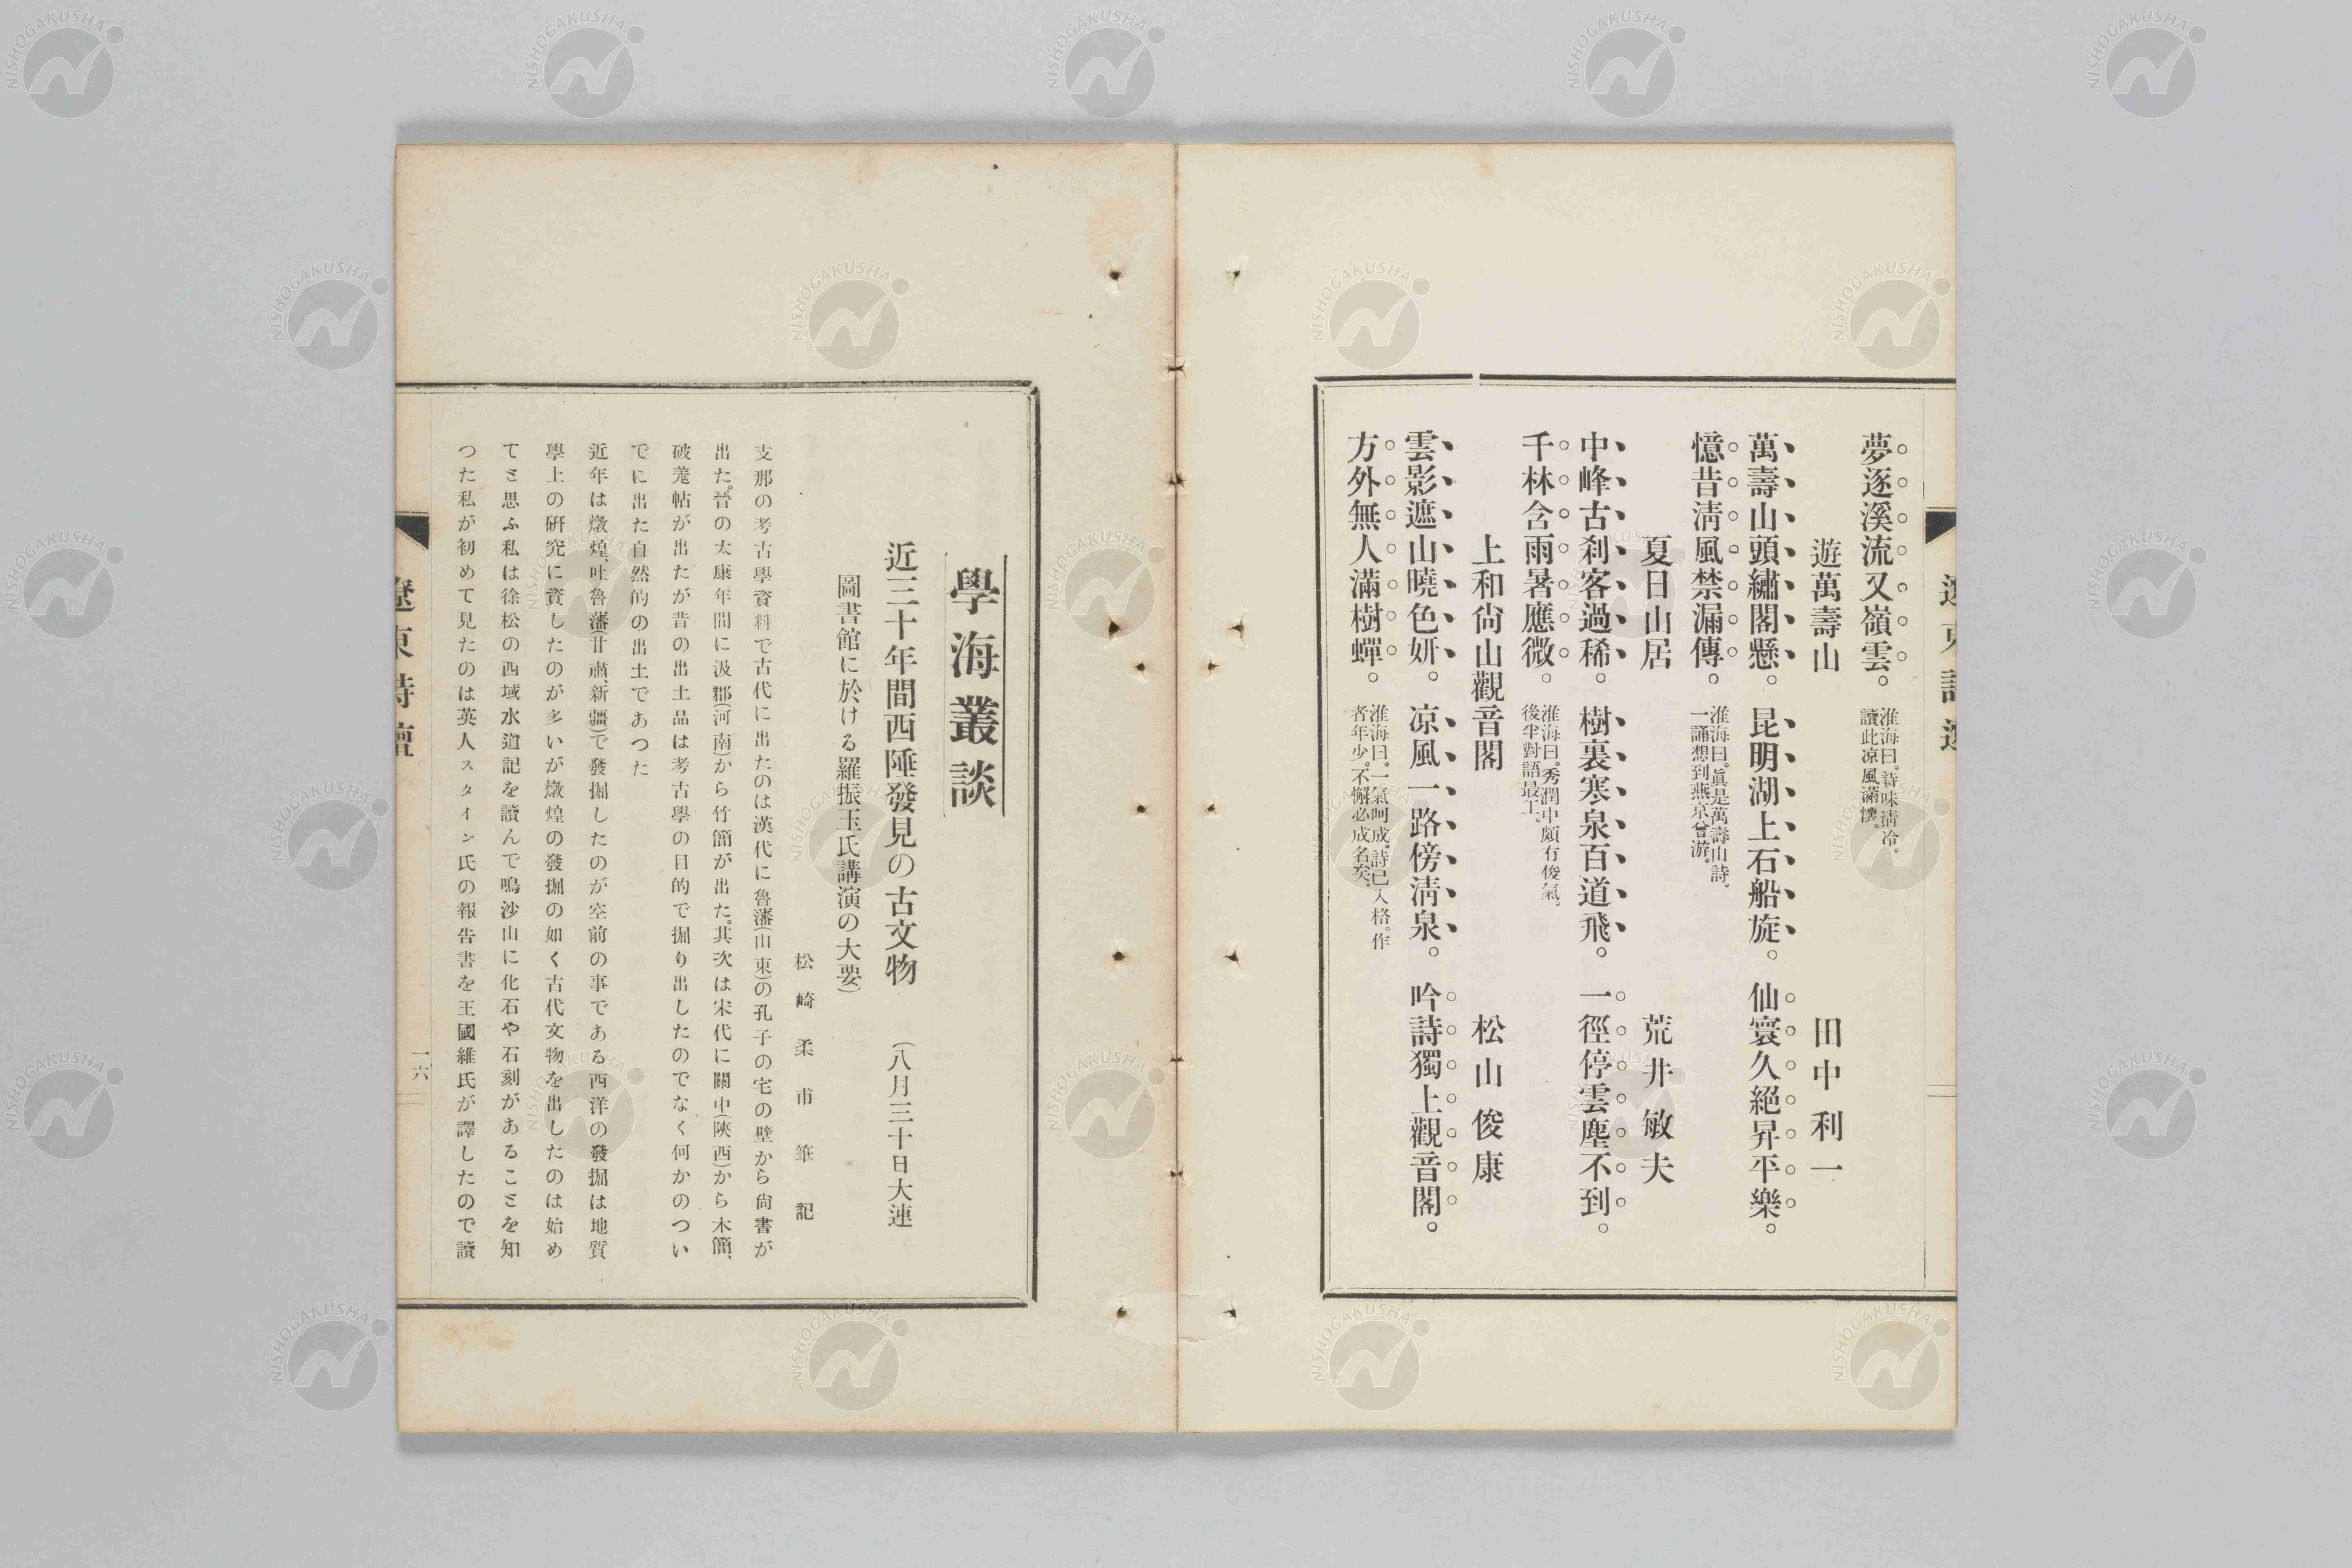 夢逐溪流又嶺雲。淮海曰。詩味清冷。
讀此凉風滿懷。
遊萬壽山 田中利一
萬壽山頭繡閣懸。昆明湖上石船旋。仙寰久絕昇平樂。
憶昔淸風禁漏傳。淮海曰。眞是萬壽山詩。
一誦想到燕京曾游。
夏日山居 荒井敏夫
中峰古刹客過稀。樹裏寒泉百道飛。一徑停雲塵不到。
千林含雨暑應微。淮海曰。秀潤中頗有俊氣。
後半對語最工。
上和尙山觀音閣 松山俊康
雲影遮山曉色妍。凉風一路傍淸泉。吟詩獨上觀音閣。
方外無人滿樹蟬。淮海曰。一氣呵成。詩已入格。作
者年少。不懈必成名矣。
學海叢談
近三十年間西陲發見の古文物 （八月三十日大連
圖書館に於ける羅振玉氏講演の大要）
松崎柔甫筆記
支那の考古學資料で古代に出たのは漢代に魯藩(山東)の孔子の宅の壁から尙書が
出た。晉の太康年間に汲郡(河南)から竹簡が出た。其次は宋代に關中(陝西)から木簡、
破羗帖が出たが昔の出土品は考古學の目的で掘り出したのでなく何かのつい
でに出た自然的の出土であつた
近年は燉煌、吐魯藩(甘肅、新疆)で發掘したのが空前の事である西洋の發掘は地質
學上の硏究に資したのが多いが燉煌の發掘の如く古代文物を出したのは始め
てと思ふ私は徐松の西域水道記を讀んで鳴沙山に化石や石刻があることを知
つた私が初めて見たのは英人スタイン氏の報告書を王國維氏が譯したので讀
遼東詩壇
一六
NISHOGAKUSHA